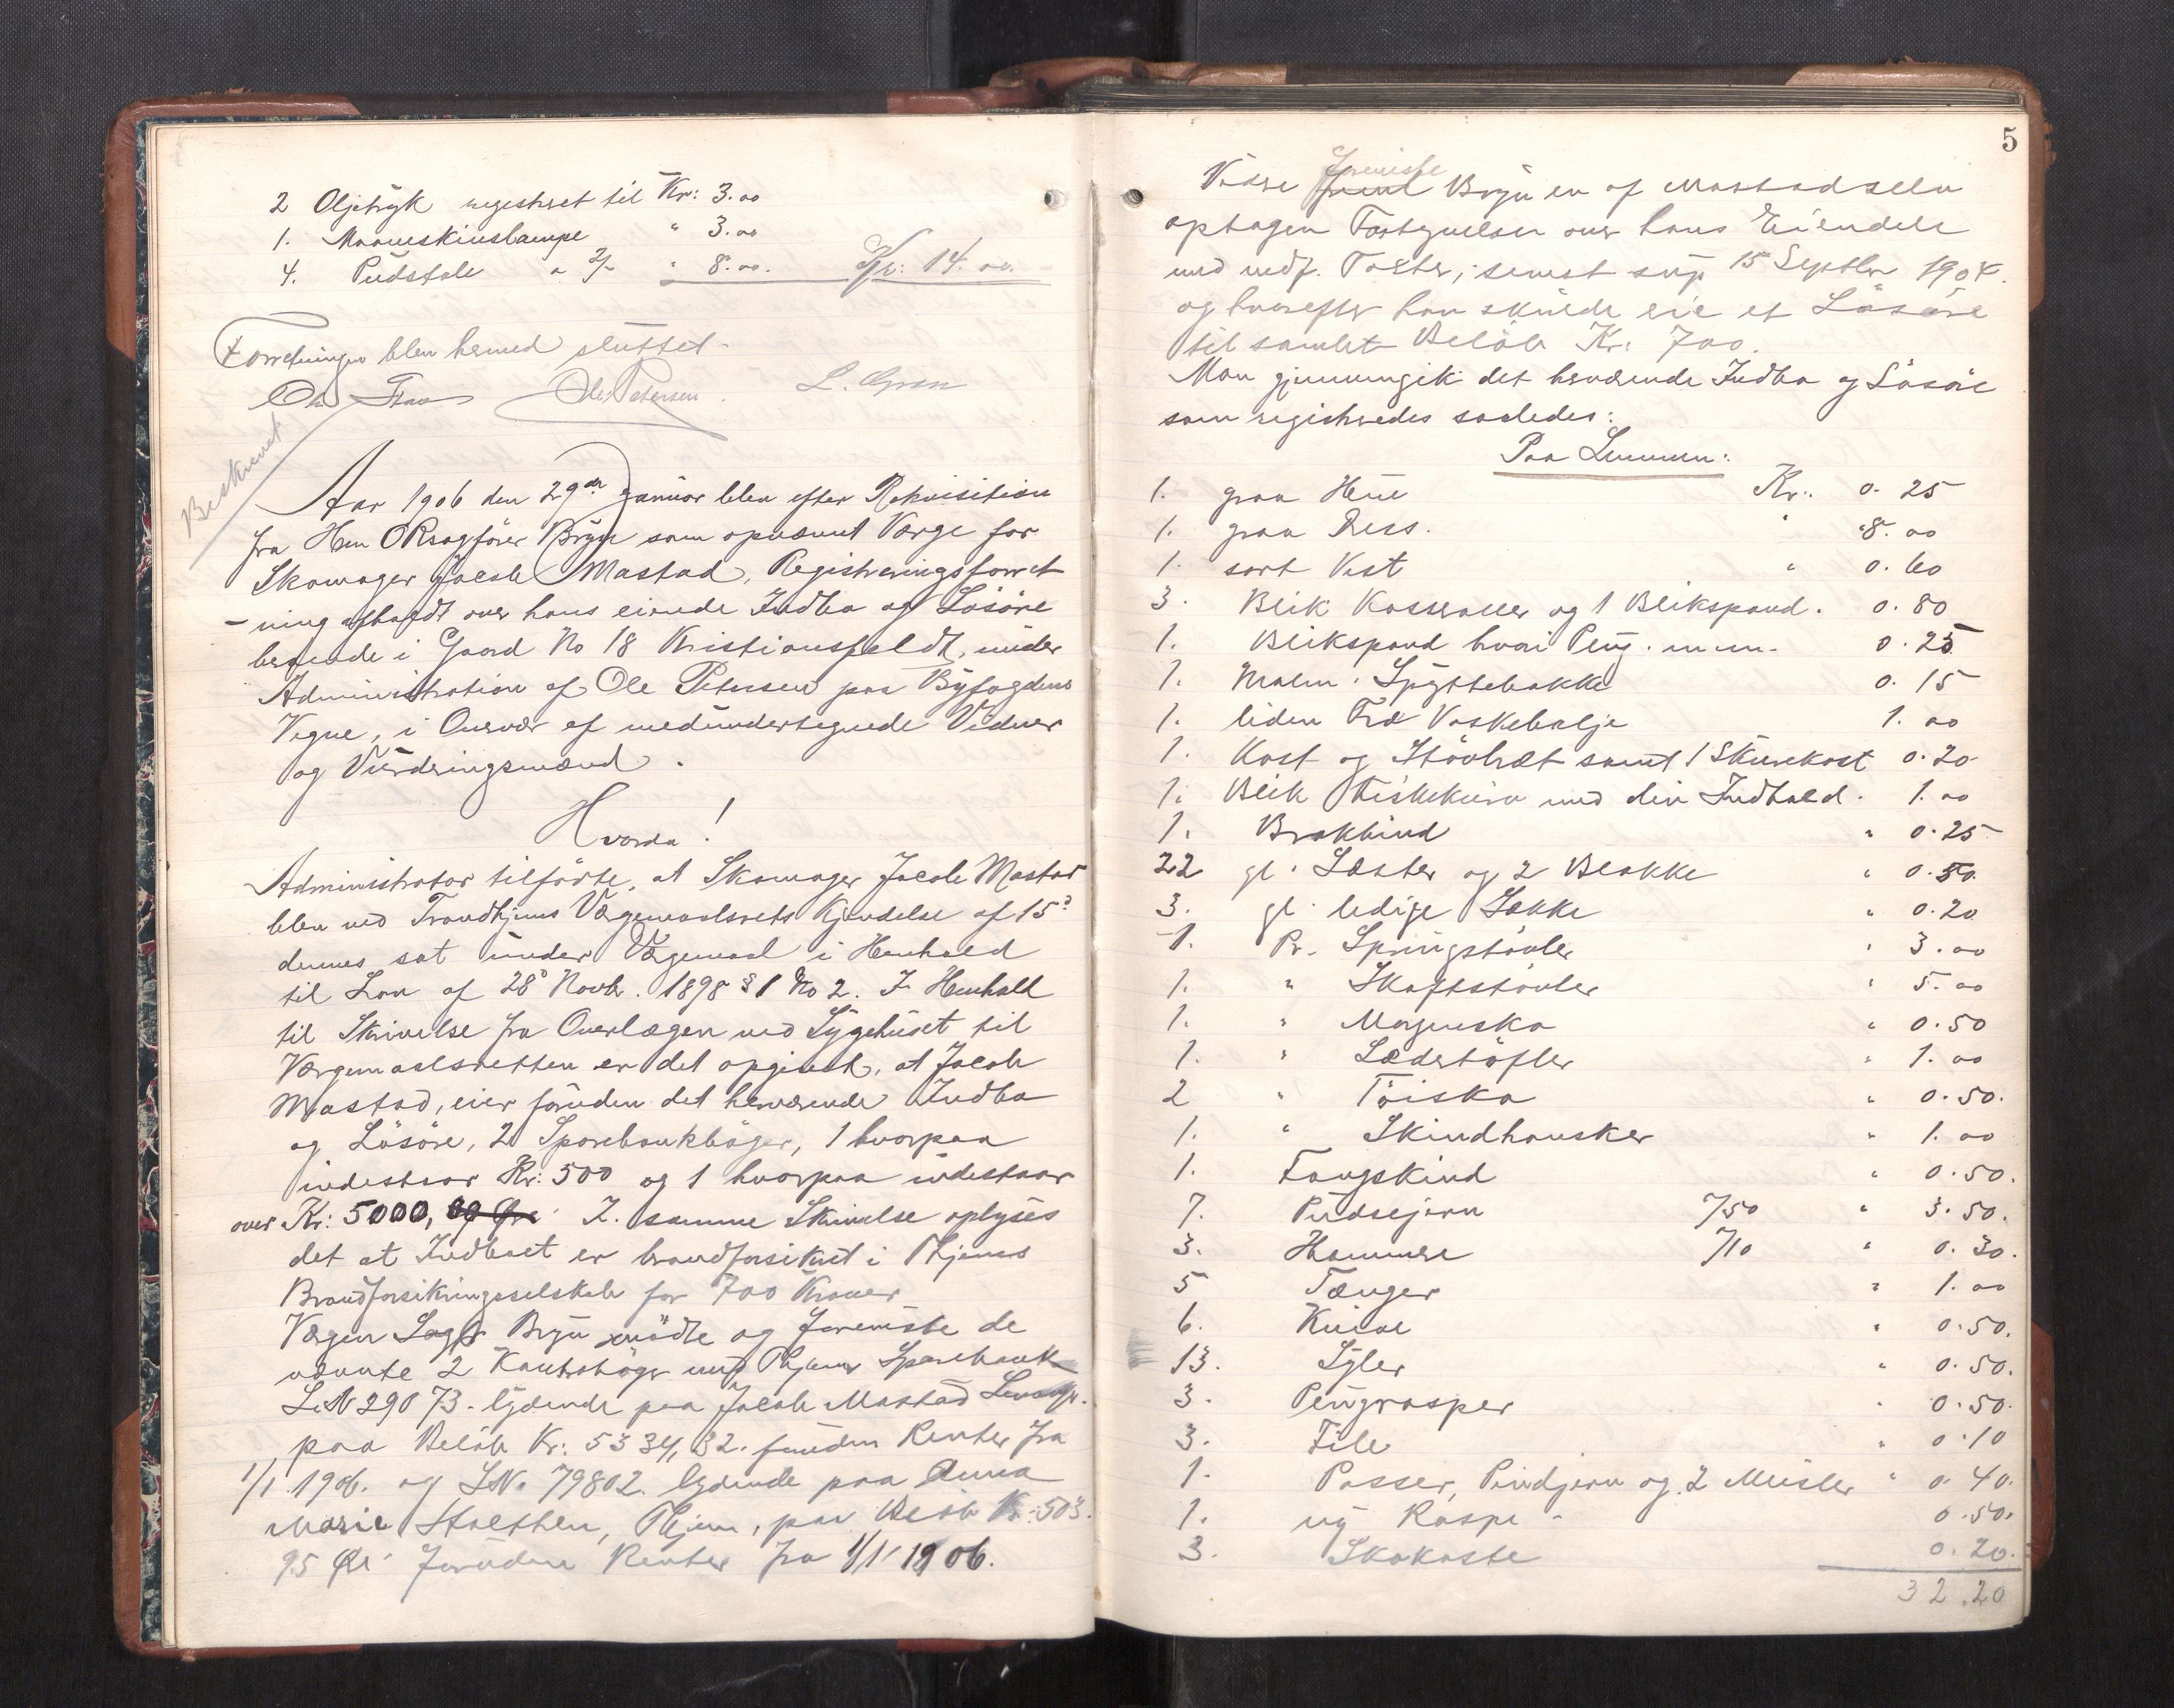 2 Oljetryk registreret til Kr: 3.00
1. Maaneskinslampe " 3.00
4. Pudstole a 2/- " 8.00. Kr: 14.00.
Forretningen blev hermed sluttet.
Ole Petersen. L. Gren
Beskrevet
Aar 1906 den 29de Januar blev efter Rekvisition
fra Herr ORsagfører Bryn som opnævnt Værge for
Skomager Jacob Mastad, Registreringsforret
-ning afholdt over hans eiende Indbo og Løsøre
beroende i Gaard No 18 Kristiansfeldt, under
Administration af Ole Petersen paa Byfogdens
Vegne, i Overvær af medundertegnede Vidner
og Vurderingsmænd.
Hvorda!
Administrator tilførte, at Skomager Jacob Mastad
blev ved Trondhjems Værgemaalsrets Kjendelse af 15de
dennes sat under Værgemaal i Henhold
til Lov af 28de Novbr. 1898 § 1 No 2. I Henhold
til Skrivelse fra Overlægen ved Sygehuset til
Værgemaalsretten er det opgivet, at Jacob
Mastad, eier foruden det herværende Indbo
og Løsøre, 2 Sparebankbøger, 1 hvorpaa
indestaar Kr: 500 og 1 hvorpaa indestaar
over Kr: 5000, og Øre. I samme Skrivelse oplyses
det at Indboet er brandforsikret i Thjems
Brandforsikringsselskab for 700 Kroner
Værgen Sagf. Bryn mødte og foreviste de
nævnte 2 Kontrabøger med Thjems Sparebank
L.N 29073. lydende paa Jacob Mastad
paa Beløb Kr: 5334,32. foruden Renter fra
1/1 1906. og LN. 79802. lydende paa Anna
Marie Stolthen, Thjem, paa Beløb Kr: 503.
95 Øre foruden Renter fra 1/1 1906.
5
Videre foreviste Bryn en af Mastad selv
optagen Fortegnelse over hans Eiendele
med vedf. Takster, senest 15 Septbr 1904.
og hvorefter han skulde eie et Løsøre
til samlet Beløb Kr. 700.
Man gjennemgik det herværende Indbo og Løsøre
som registreredes saaledes:
Paa Lemmen:
1. graa Hue Kr: 0. 25
1. graa Dress. " 8. 00
1. sort Vest " 0. 60
3. Blik Kasseroller og 1 Blikspand. 0. 80
1. Blikspand hvori Pløg. m.m. 0. 25
1. Malm. Spyttebakke 0. 15
1. liden Træ Vaskebalje 1. 00
1. Kost og Støvbræt samt 1 Skurekost 0. 20
1. Blik Fiskekurv med div Indhold. 1. 00
1. Brokbind " 0. 25
22 gl. Læster og 2 Blokke " 0. 50.
3. gl. ledige Sække " 0. 20
1. Pr. Springstøvler " 3. 00
1. " Skaftstøvler " 5. 00
1. " Morgensko " 0. 50
1. " Lædertøfler " 1. 00
2 " Tøisko " 0. 50.
1. " Skindhansker " 1. 00
1. Fangskind " 0. 50.
7. Pudsejern 7/50 " 3. 50.
3. Hammere 7/10 " 0. 30.
5 Tænger " 1. 00
6. Knive " 0. 50.
13. Syler " 0. 50.
3. Pløgrasper " 0. 50.
3. File " 0. 10
1. Passer, Pindjern og 2 Meisler " 0. 40.
1. ny Raspe 0. 50.
3. Skokoste 0. 20.
32.20